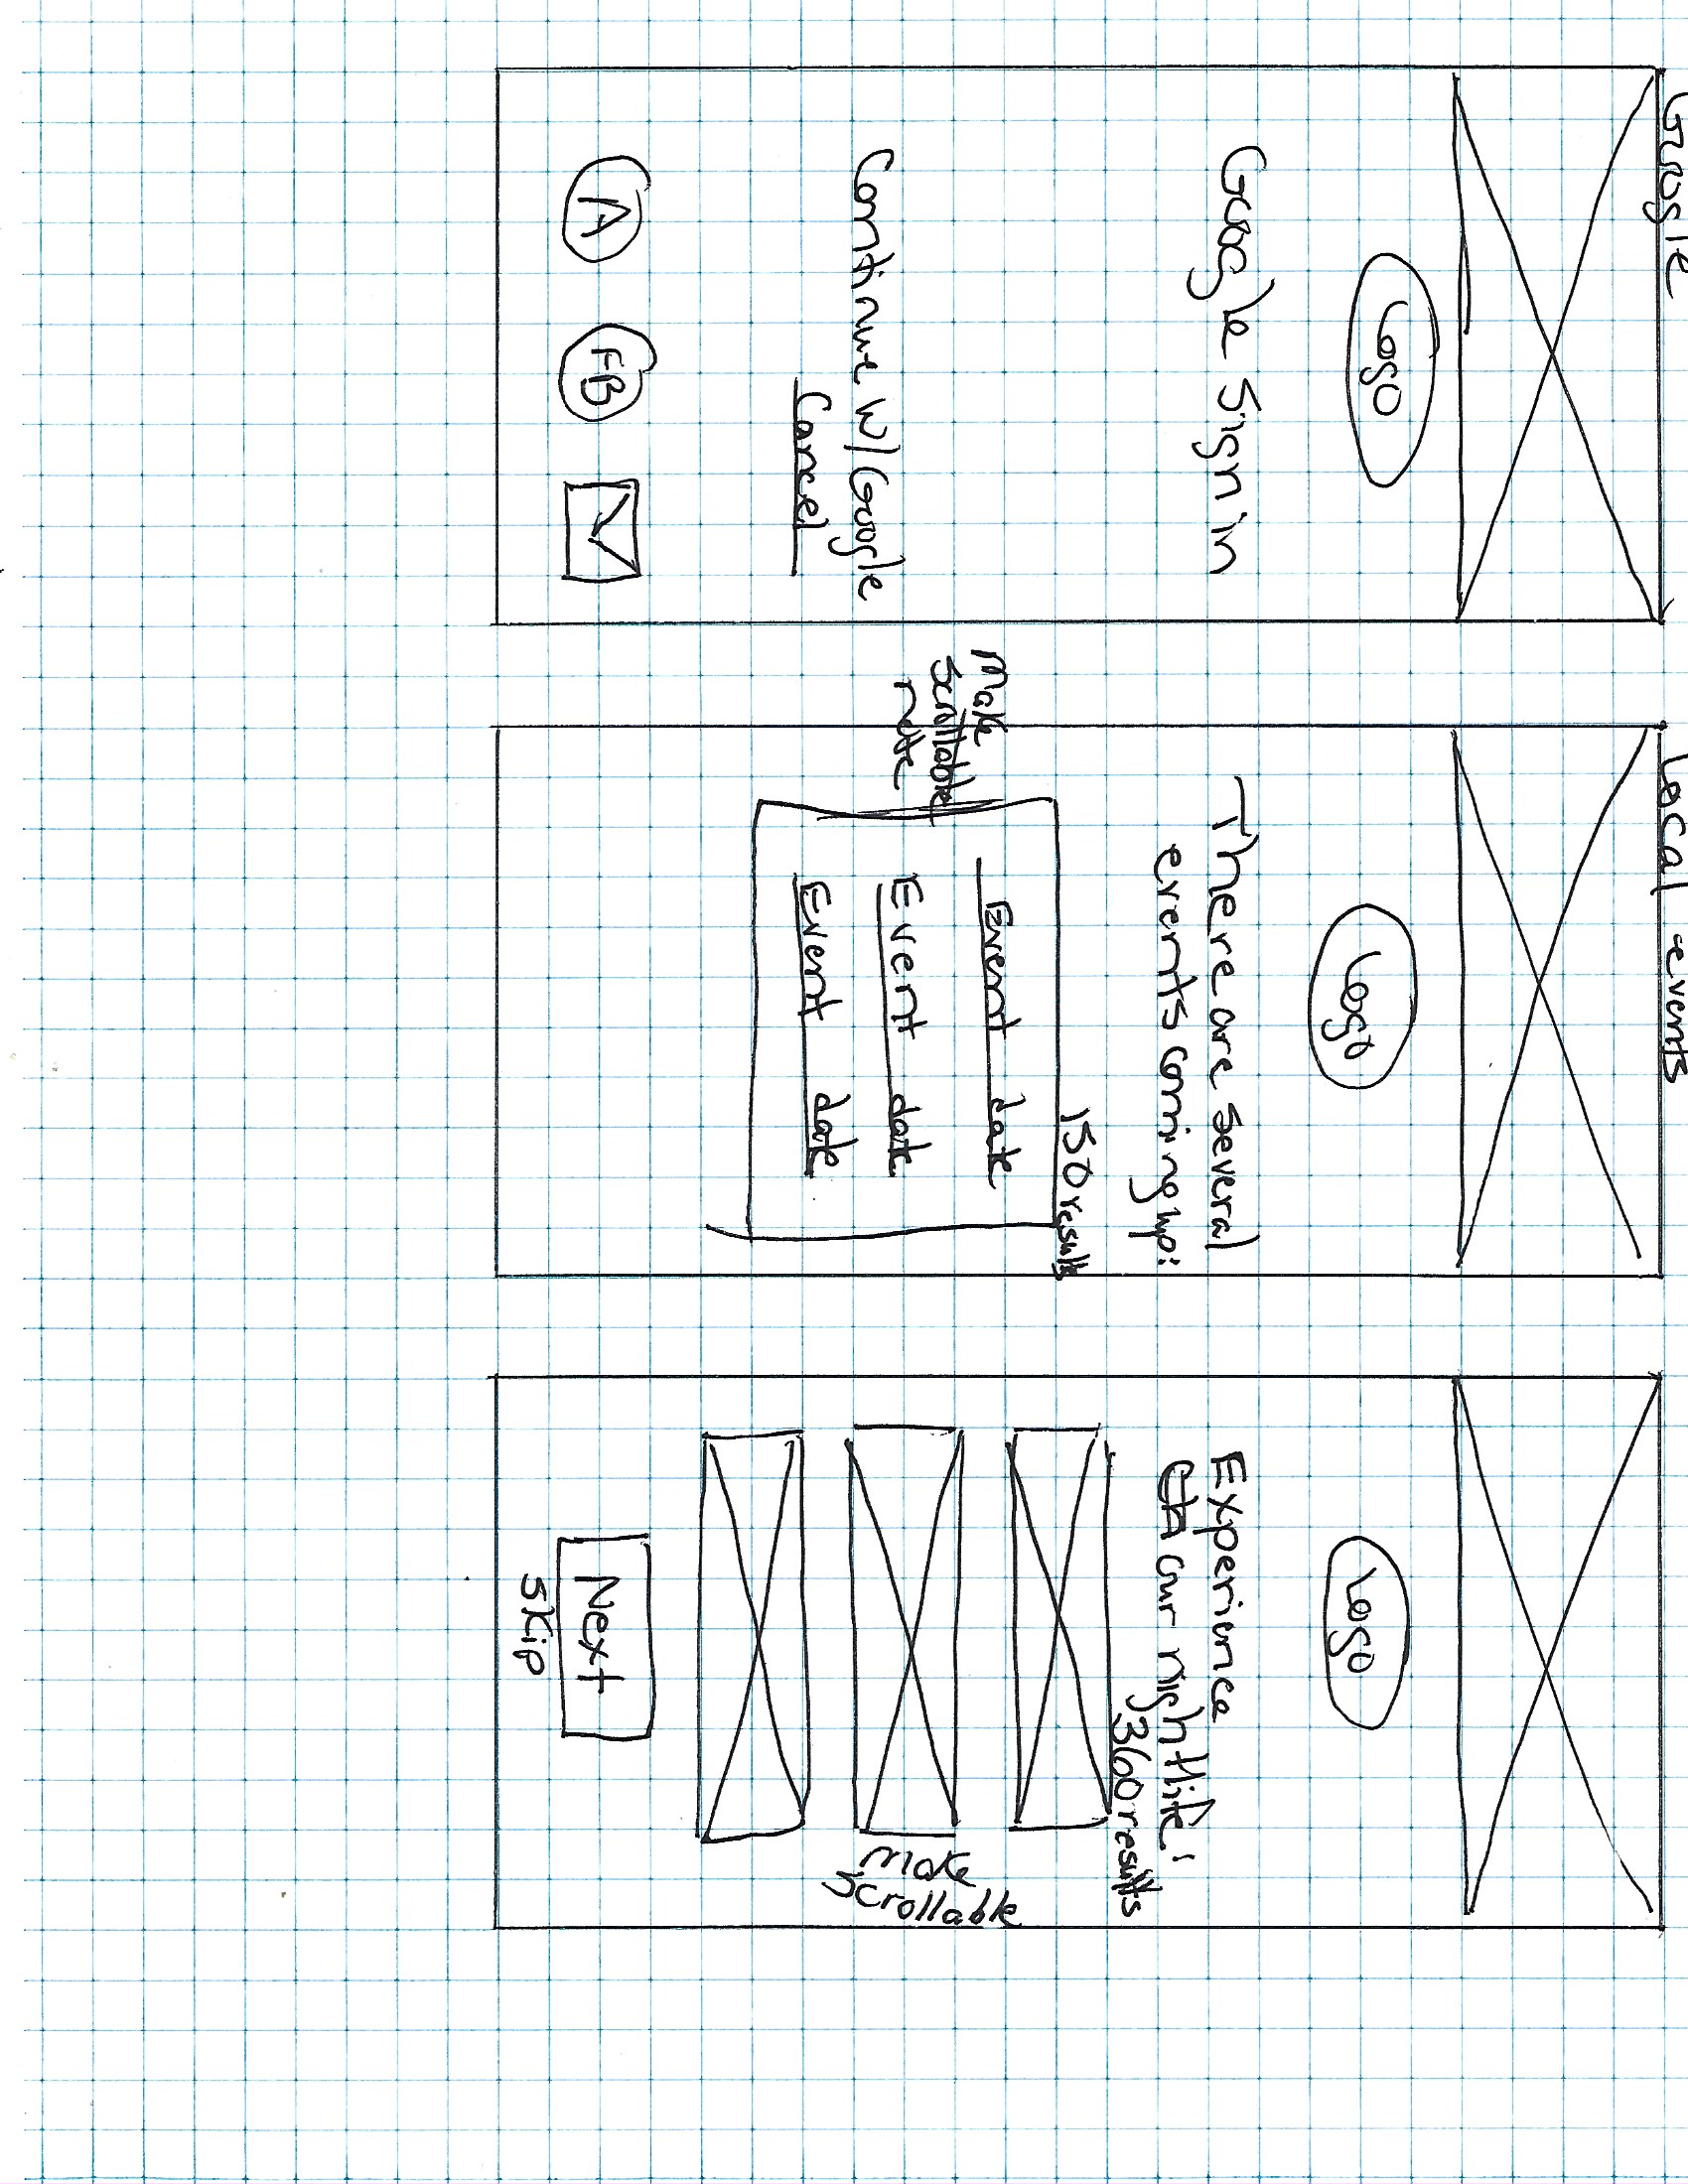 Google
Logo
Google Sign in
Continue w/ Google
Cancel
A
FB
Local events
Logo
There are several
events coming up:
150 results
Make
scrollable
note
Event date
Event date
Event date
Logo
Experience
our nightlife!
360 results
make
scrollable
Next
skip